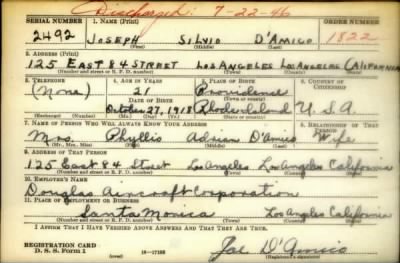 Discharged: 7-22-46
SERIAL NUMBER 1. NAME (Print) ORDER NUMBER
2492 JOSEPH SILVIO D'AMICO 1822
(First) (Middle) (Last)
2. ADDRESS (Print)
125 EAST 84 STREET LOS ANGELES LOS ANGELES CALIFORNIA
(Number and street or R. F. D. number) (Town) (County) (State)
3. TELEPHONE 4. AGE IN YEARS 5. PLACE OF BIRTH 6. COUNTRY OF CITIZENSHIP
(None) 21 Providence
DATE OF BIRTH (Town or county)
October 27, 1918 Rhode Island U.S.A.
(Exchange) (Number) (Mo.) (Day) (Yr.) (State or country)
7. NAME OF PERSON WHO WILL ALWAYS KNOW YOUR ADDRESS 8. RELATIONSHIP OF THAT PERSON
Mrs. Phyllis Adrian D'Amico Wife
(Mr., Mrs., Miss) (First) (Middle) (Last)
9. ADDRESS OF THAT PERSON
125 East 84 Street Los Angeles Los Angeles California
(Number and street or R. F. D. number) (Town) (County) (State)
10. EMPLOYER'S NAME
Douglas Aircraft Corporation
11. PLACE OF EMPLOYMENT OR BUSINESS
Santa Monica Los Angeles California
(Number and street or R. F. D. number) (Town) (County) (State)
I AFFIRM THAT I HAVE VERIFIED ABOVE ANSWERS AND THAT THEY ARE TRUE.
REGISTRATION CARD
D. S. S. Form 1 16-17105 Joe D'Amico
(Registrant's signature)